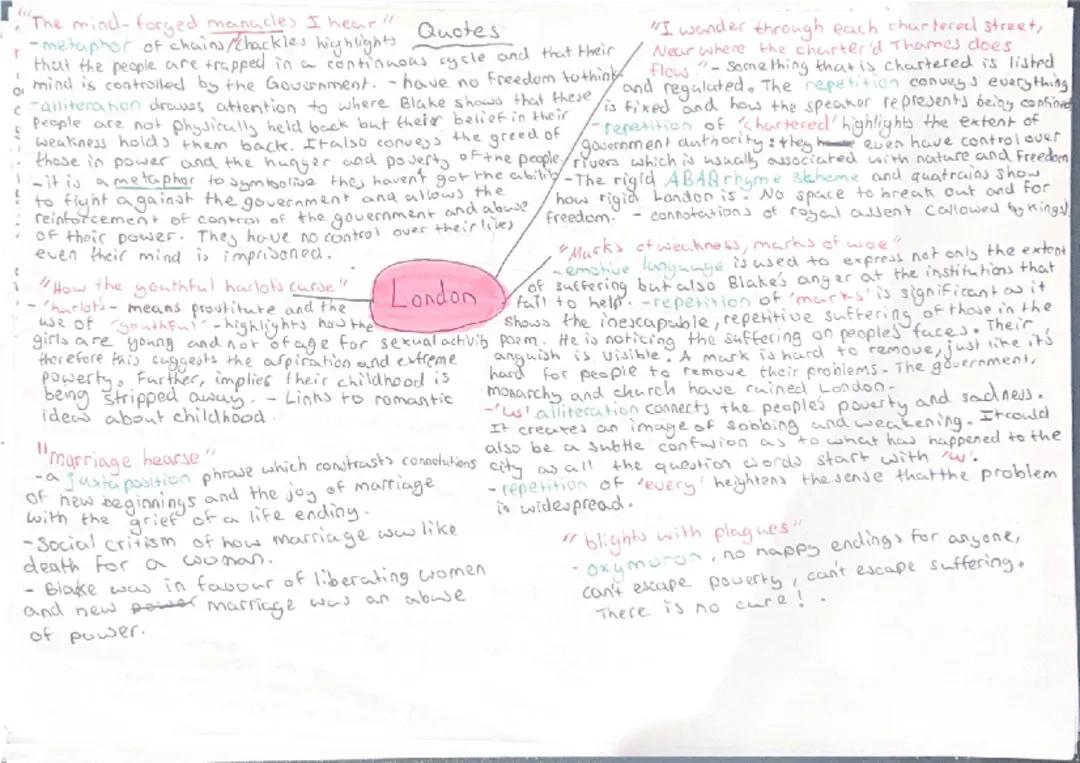 Quotes
"The mind-forged manacles I hear"
-metaphor of chains/shackles highlights
that the people are trapped in a continuous cycle and that their
mind is controlled by the Government. - have no freedom to think
-alliteration drawes attention to where Blake shows that these
people are not physically held back but their belief in their
weakness holds them back. It also conveys the greed of
those in power and the hunger and poverty of the people
-it is a metaphor to symbolise they haven't got the ability
to fight against the government and allows the
reinforcement of control of the government and abuse
of their power. They have no control over their lives
even their mind is imprisoned.
"I wander through each chartered street,
Near where the charter'd Thames does
flow." - something that is chartered is listed
and regulated. The repetition conveys everything
is fixed and how the speaker represents being confined
-repetition of 'chartered' highlights the extent of
government authority: they even have control over
rivers which is usually associated with nature and freedom
-The rigid ABAB rhyme scheme and quatrains show
how rigid London is. No space to break out and for
freedom. - connotations of royal assent (allowed by Kings)
London
"How the youthful harlots curse"
- "harlots - means prostitute and the
use of "youthful" - highlights how the
girls are young and not of age for sexual activity
therefore this suggests the aspiration and extreme
powerty. Further, implies their childhood is
being stripped away. - Links to romantic
ideas about childhood.
"Marks of weakness, marks of woe"
-emotive language is used to express not only the extent
of suffering but also Blake's anger at the institutions that
fail to help. -repetition of 'marks' is significant as it
shows the inescapable, repetitive suffering of those in the
poem. He is noticing the suffering on peoples faces. Their
anguish is visible. A mark is hard to remove, just like it's
hard for people to remove their problems. The government,
monarchy and church have ruined London.
-'Ws' alliteration connects the people's poverty and sadness.
It creates an image of sobbing and weakening. It could
also be a subtle confusion as to what has happened to the
city as all the question words start with 'w'.
-repetition of 'every' heightens the sense that the problem
is widespread.
"marriage hearse"
-a juxtaposition phrase which constrasts connotations
of new beginnings and the joy of marriage
with the grief of a life ending.
-Social critism of how marriage was like
death for a woman.
- Blake was in favour of liberating women
and new power marriage was an abuse
of power.
"blights with plagues"
- oxymoron, no happy endings for anyone,
can't escape poverty, can't escape suffering.
There is no cure!